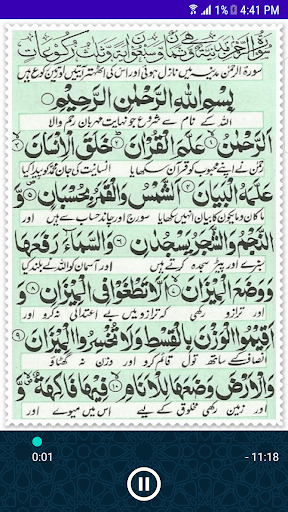 4:41 PM
سورۃ الرحمٰن مدینہ میں نازل ہوئی اور اس کی اٹھتر آیتیں اور تین رکوع ہیں
بِسْمِ اللّٰهِ الرَّحْمٰنِ الرَّحِيْمِ
اللہ کے نام سے شروع جو نہایت مہربان رحم والا
اَلرَّحْمٰنُ ۝ عَلَّمَ الْقُرْاٰنَ ۝ خَلَقَ الْاِنْسَانَ ۝
رحمٰن نے اپنے محبوب کو قرآن سکھایا انسانیت کی جان محمد کو پیدا کیا
عَلَّمَهُ الْبَيَانَ ۝ اَلشَّمْسُ وَالْقَمَرُ بِحُسْبَانٍ ۝ وَّ
ماکان ومایکون کا بیان انہیں سکھایا سورج اور چاند حساب سے ہیں اور
النَّجْمُ وَالشَّجَرُ يَسْجُدٰنِ ۝ وَالسَّمَآءَ رَفَعَهَا
سبزے اور پیڑ سجدہ کرتے ہیں اور آسمان کو اللہ نے بلند کیا
وَوَضَعَ الْمِيْزَانَ ۝ اَلَّا تَطْغَوْا فِي الْمِيْزَانِ ۝ وَ
اور ترازو رکھی کہ ترازو میں بے اعتدالی نہ کرو اور
اَقِيْمُوا الْوَزْنَ بِالْقِسْطِ وَلَا تُخْسِرُوا الْمِيْزَانَ ۝
انصاف کے ساتھ تول قائم کرو اور وزن نہ گھٹاؤ
وَالْاَرْضَ وَضَعَهَا لِلْاَنَامِ ۝ فِيْهَا فَاكِهَةٌ وَّ
اور زمین رکھی مخلوق کے لیے اس میں میوے اور
0:01
- 11:18